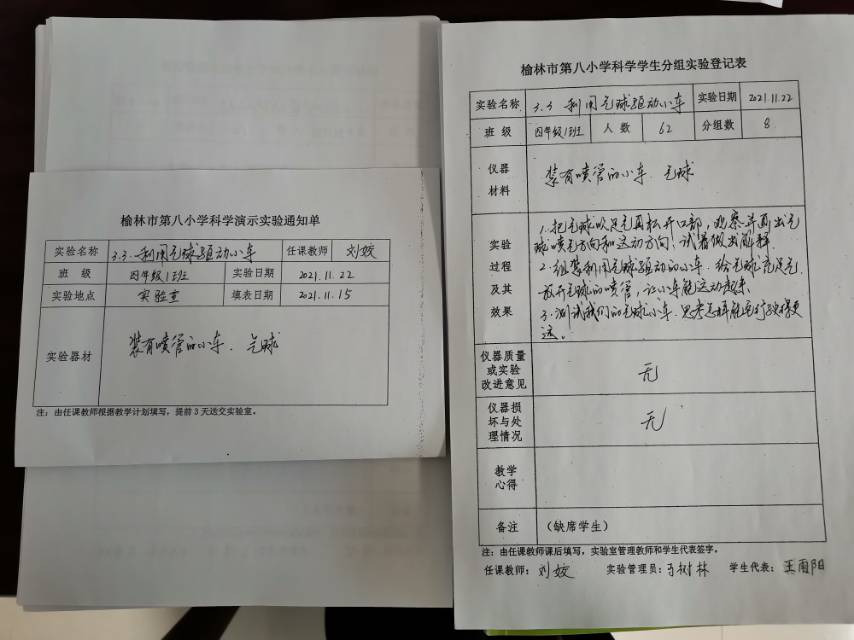 榆林市第八小学科学演示实验通知单
实验名称 3.3.利用气球驱动小车 任课教师 刘姣
班 级 四年级1班 实验日期 2021.11.22
实验地点 实验室 填表日期 2021.11.15
实验器材 装有喷管的小车、气球
注：由任课教师根据教学计划填写，提前3天送交实验室。
榆林市第八小学科学学生分组实验登记表
实验名称 3.3 利用气球驱动小车 实验日期 2021.11.22
班 级 四年级1班 人 数 62 分组数 8
仪器
材料
装有喷管的小车、气球
实验
过程
及其
效果
1.把气球吹足气再松开口部，观察并画出气
球喷气方向和运动方向！试着做出解释
2.组装利用气球驱动的小车。给气球充足气，
放开气球的喷管，让小车能运动起来。
3.测试我们的气球小车，思考怎样能运行
远。
仪器质量
或实验
改进意见
无
仪器损
坏与处
理情况
无
教学
心得
备注 （缺席学生）
注：由任课教师课后填写，实验室管理教师和学生代表签字。
任课教师：刘姣 实验管理员：树林 学生代表：雨阳